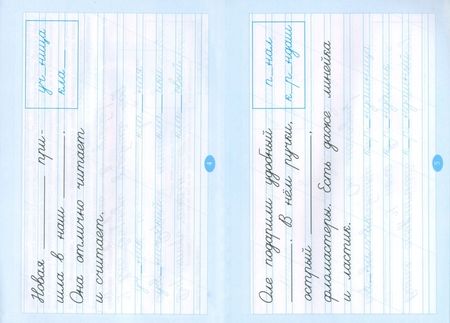 уч_ница
кла__
Новая ______ при-
шла в наш ______.
Она отлично читает
и считает.
4
п_нал
к_р_ндаш
Оле подарили удобный
______. В нём ручки,
острый ______,
фломастеры. Есть даже линейка
и ластик.
5